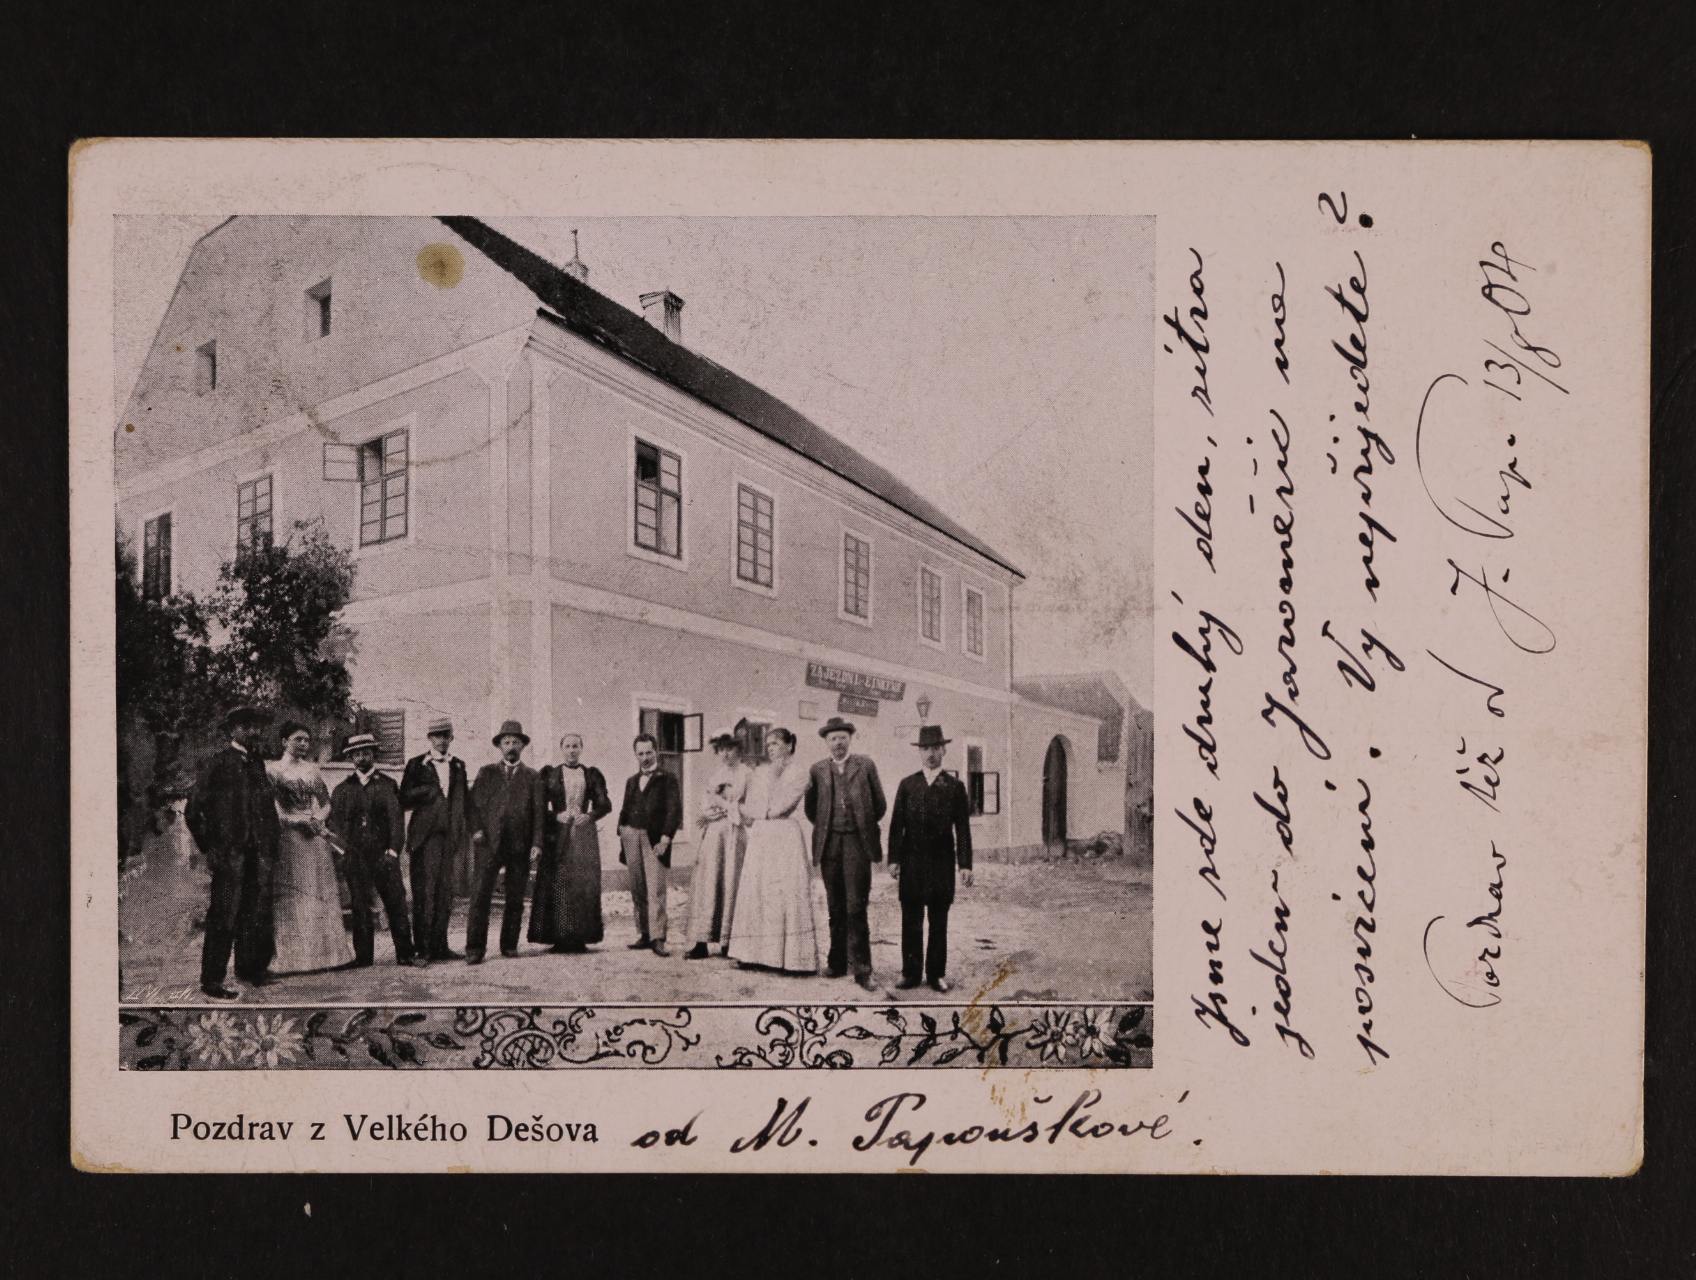 ZAJEZDNÍ
Pozdrav z Velkého Dešova od M. Tapouškové.
Jsme zde druhý den, zítra
jedem do Jaroměřic na
posvícení. Vy nepřijedete?
Pozdrav též od J. Tap. 13/8 04